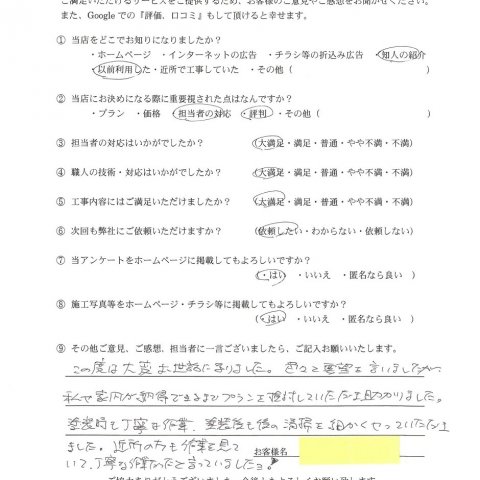 ご満足いただけるサービスをご提供するため、お客様のご意見やご感想をお聞かせください。
また、Google での『評価、口コミ』もして頂けると幸せます。
① 当店をどこでお知りになりましたか？
・ホームページ ・インターネットの広告 ・チラシ等の折込み広告 ・知人の紹介
・以前利用した・近所で工事していた ・その他（ ）
② 当店にお決めになる際に重要視された点はなんですか？
・プラン ・価格 ・担当者の対応 ・評判 ・その他（ ）
③ 担当者の対応はいかがでしたか？ （大満足・満足・普通・やや不満・不満）
④ 職人の技術・対応はいかがでしたか？ （大満足・満足・普通・やや不満・不満）
⑤ 工事内容にはご満足いただけましたか？ （大満足・満足・普通・やや不満・不満）
⑥ 次回も弊社にご依頼いただけますか？ （依頼したい・わからない・依頼しない）
⑦ 当アンケートをホームページに掲載してもよろしいですか？
（・はい ・いいえ ・匿名なら良い ）
⑧ 施工写真等をホームページ・チラシ等に掲載してもよろしいですか？
（・はい ・いいえ ・匿名なら良い ）
⑨ その他ご意見、ご感想、担当者に一言ございましたら、ご記入お願いいたします。
この度は大変お世話になりました。色々と要望を言いましたが
私や家内が納得できるまでプランを検討していただき助かりました。
塗装時も丁寧な作業、塗装後も後の清掃を細かくやっていただき
ました。近所の方も作業を見て
いて、丁寧な作業だったと言っていましたヨ。
お客様名